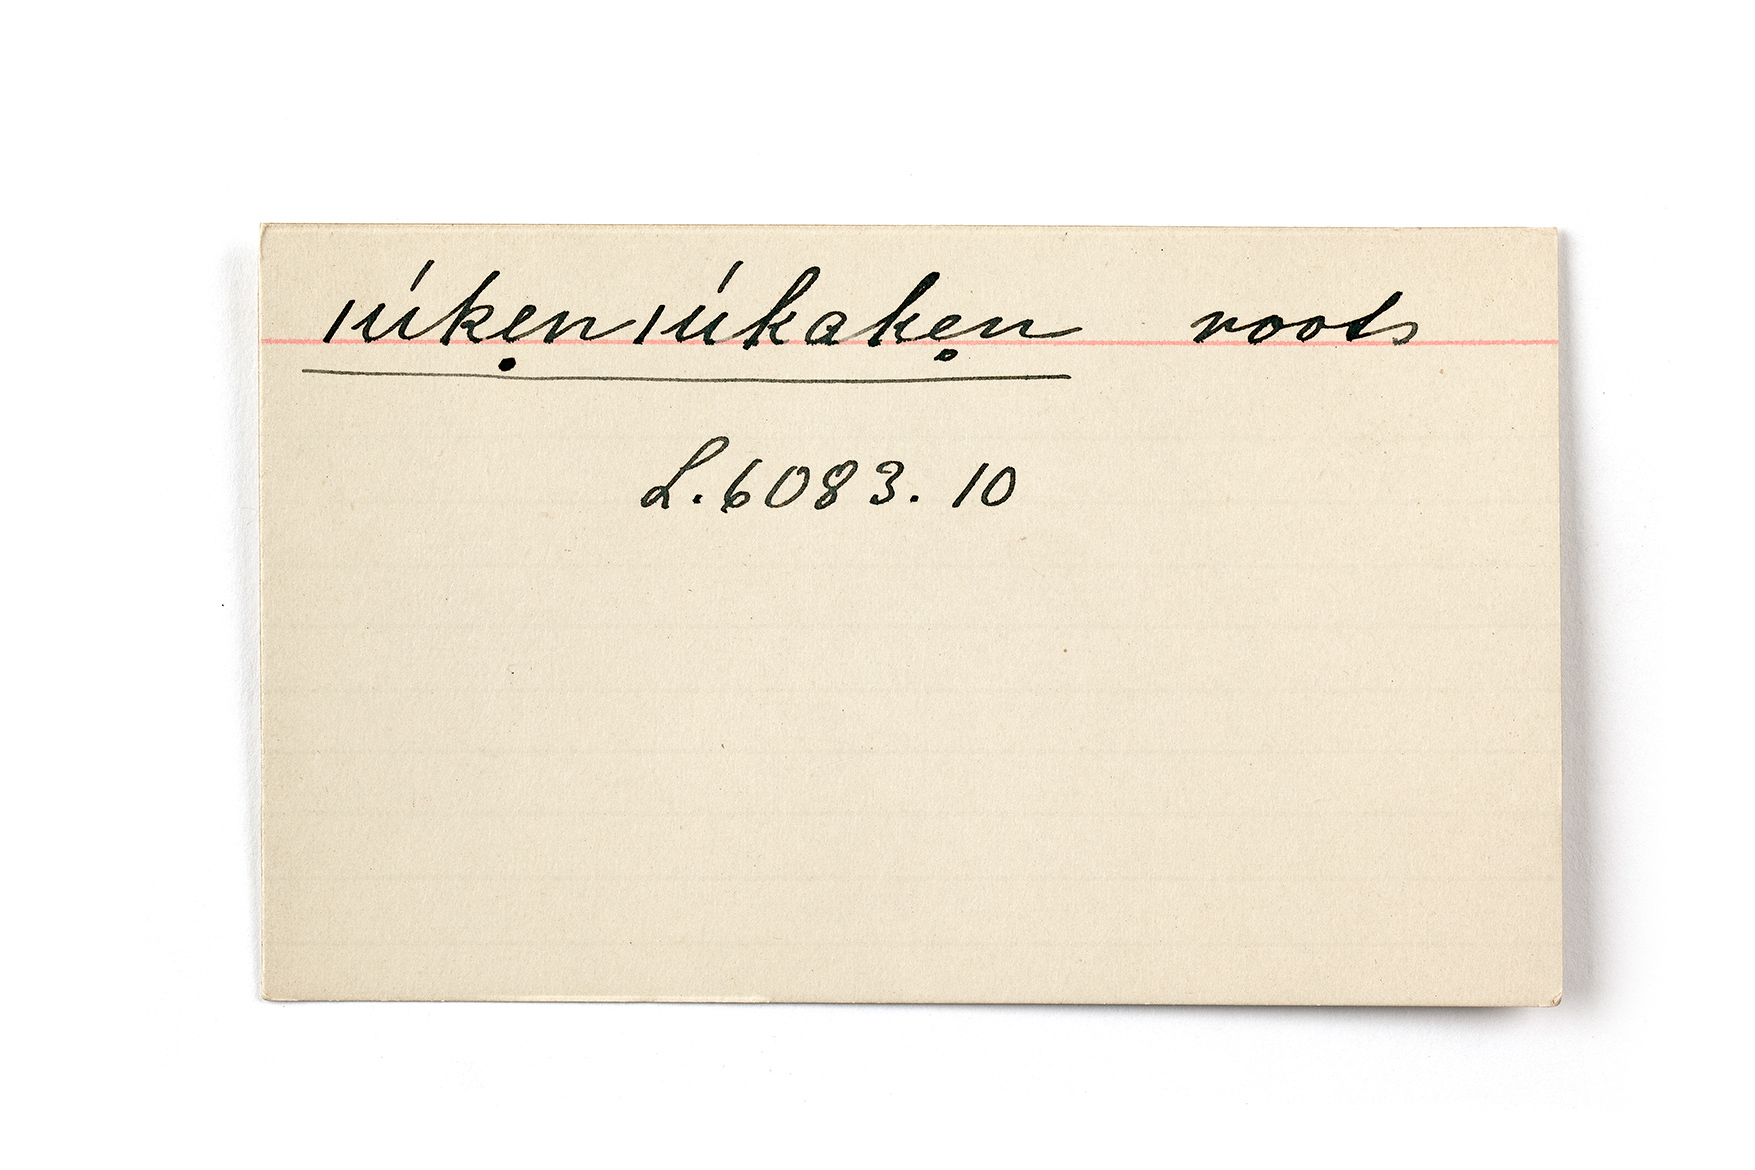 ǀúkẹnǀúkakẹn roots
L.6083.10